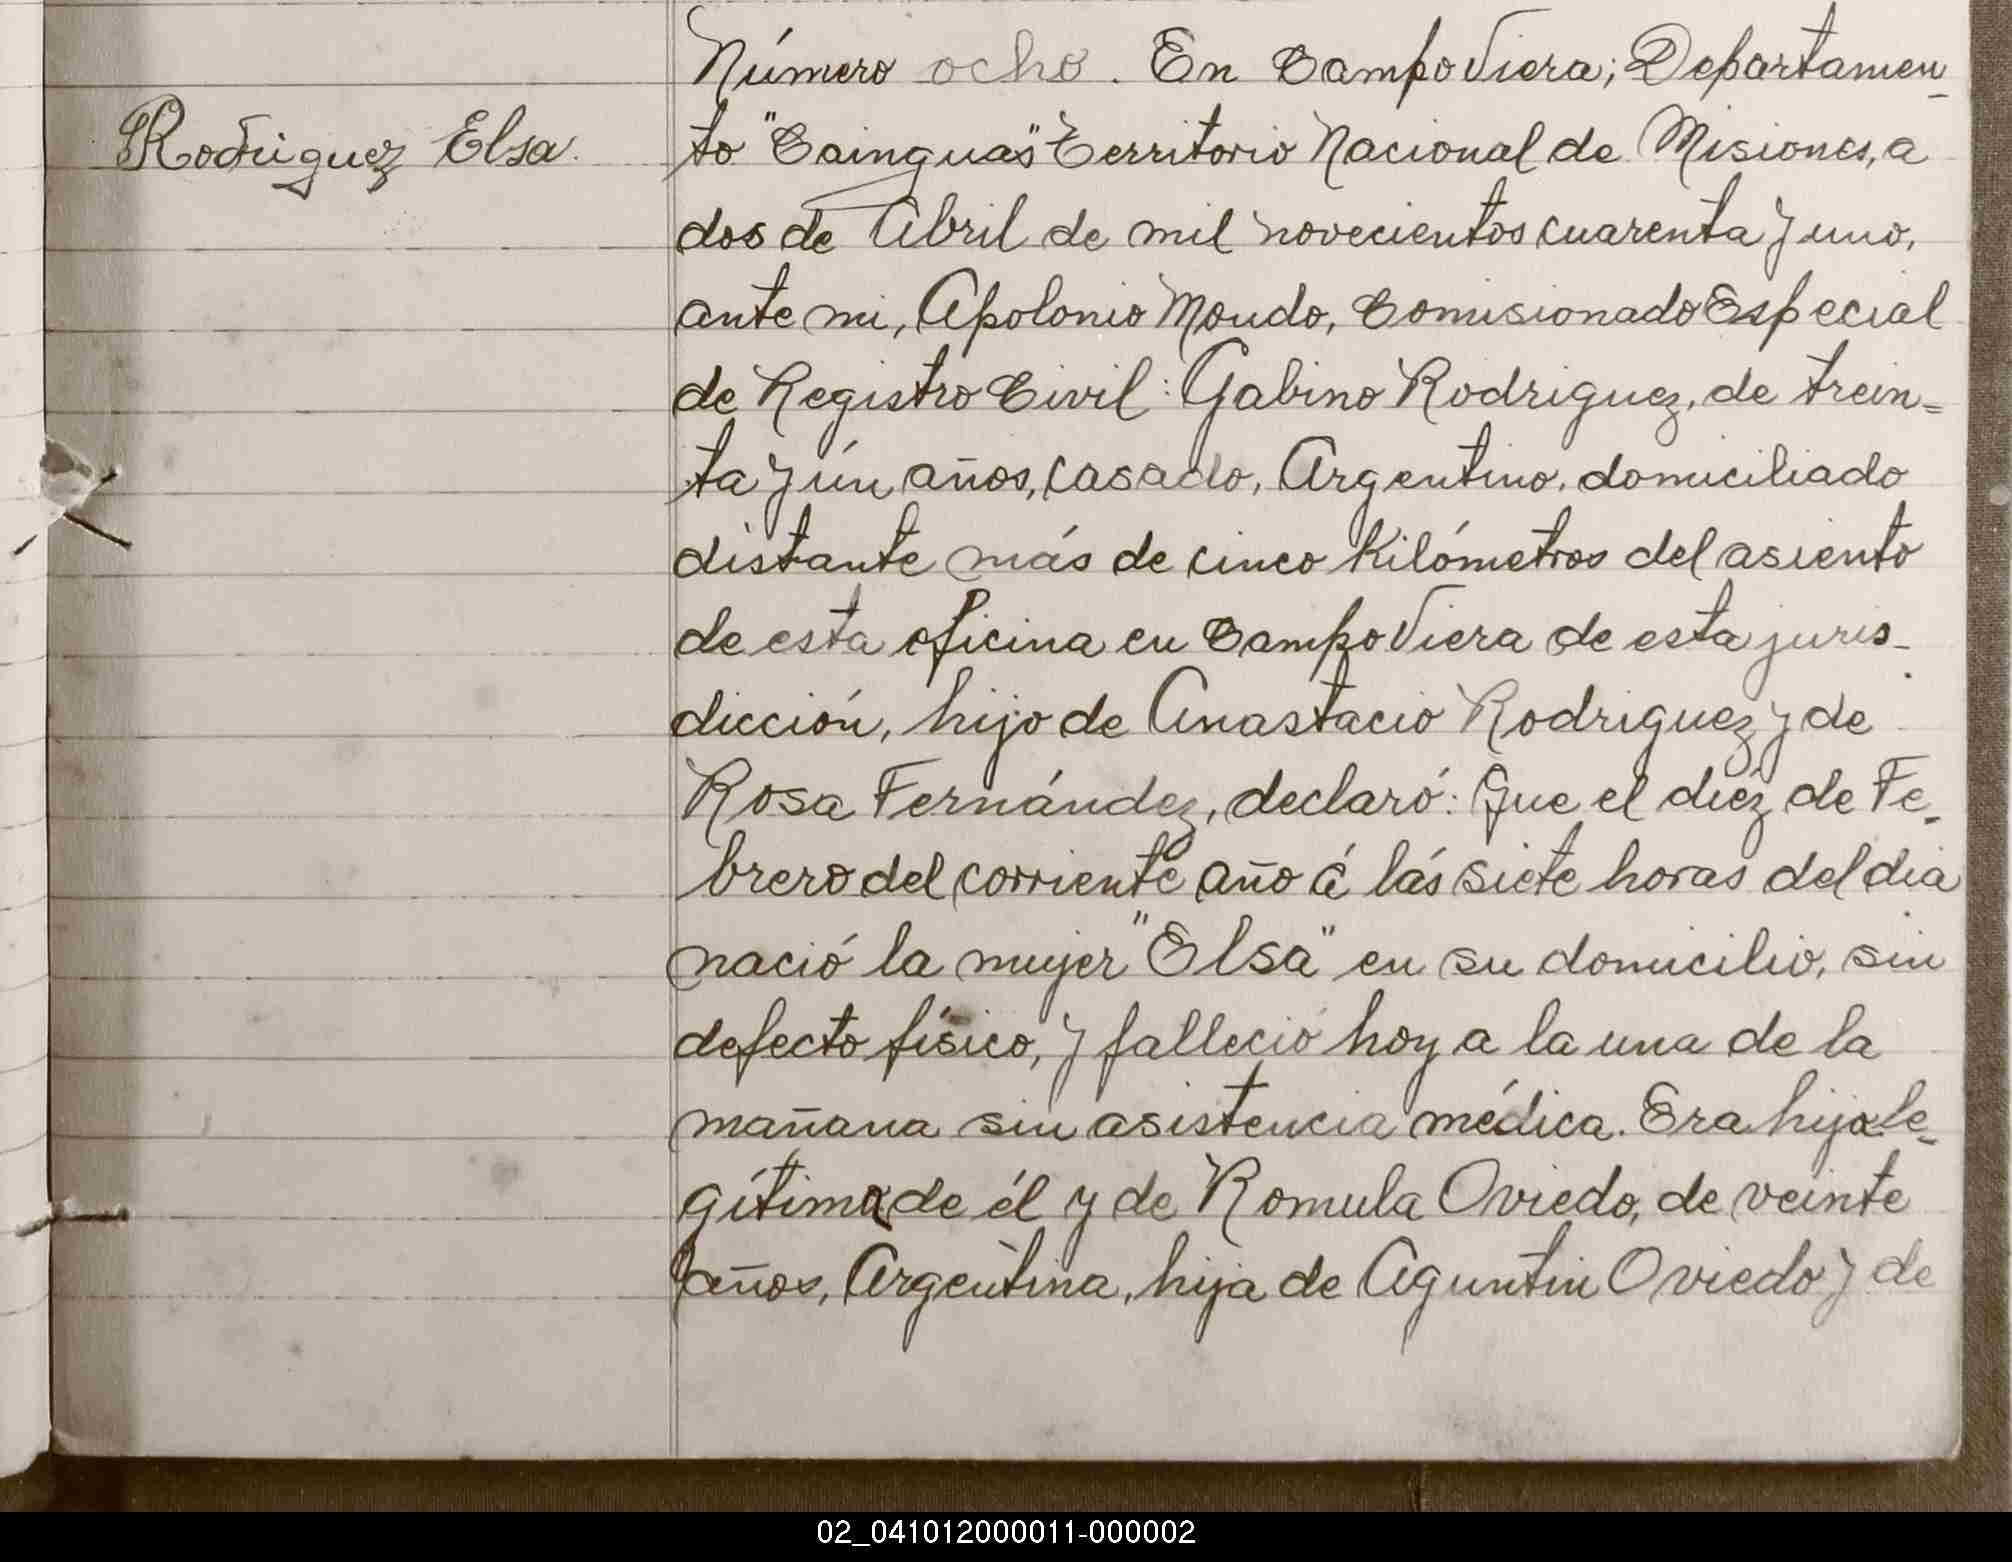 Número ocho. En Campo Viera; Departamen-
Rodriguez Elsa.
to "Cainguas" Territorio Nacional de Misiones, a
dos de Abril de mil novecientos cuarenta y uno,
ante mi, Apolonio Moudo, Comisionado Especial
de Registro Civil: Gabino Rodriguez, de trein=
ta y ún años, casado, Argentino, domiciliado
distante más de cinco Kilómetros del asiento
de esta oficina en Campo Viera de esta juris-
dicción, hijo de Anastacio Rodriguez y de
Rosa Fernández, declaró: Que el diéz de Fe-
brero del corriente año á lás siete horas del dia
nació la mujer "Elsa" en su domicilio, sin
defecto físico, y falleció hoy a la una de la
mañana sin asistencia médica. Era hija le-
gítima de él y de Romula Oviedo, de veinte
años, Argentina, hija de Aguntin Oviedo y de
02_041012000011-000002